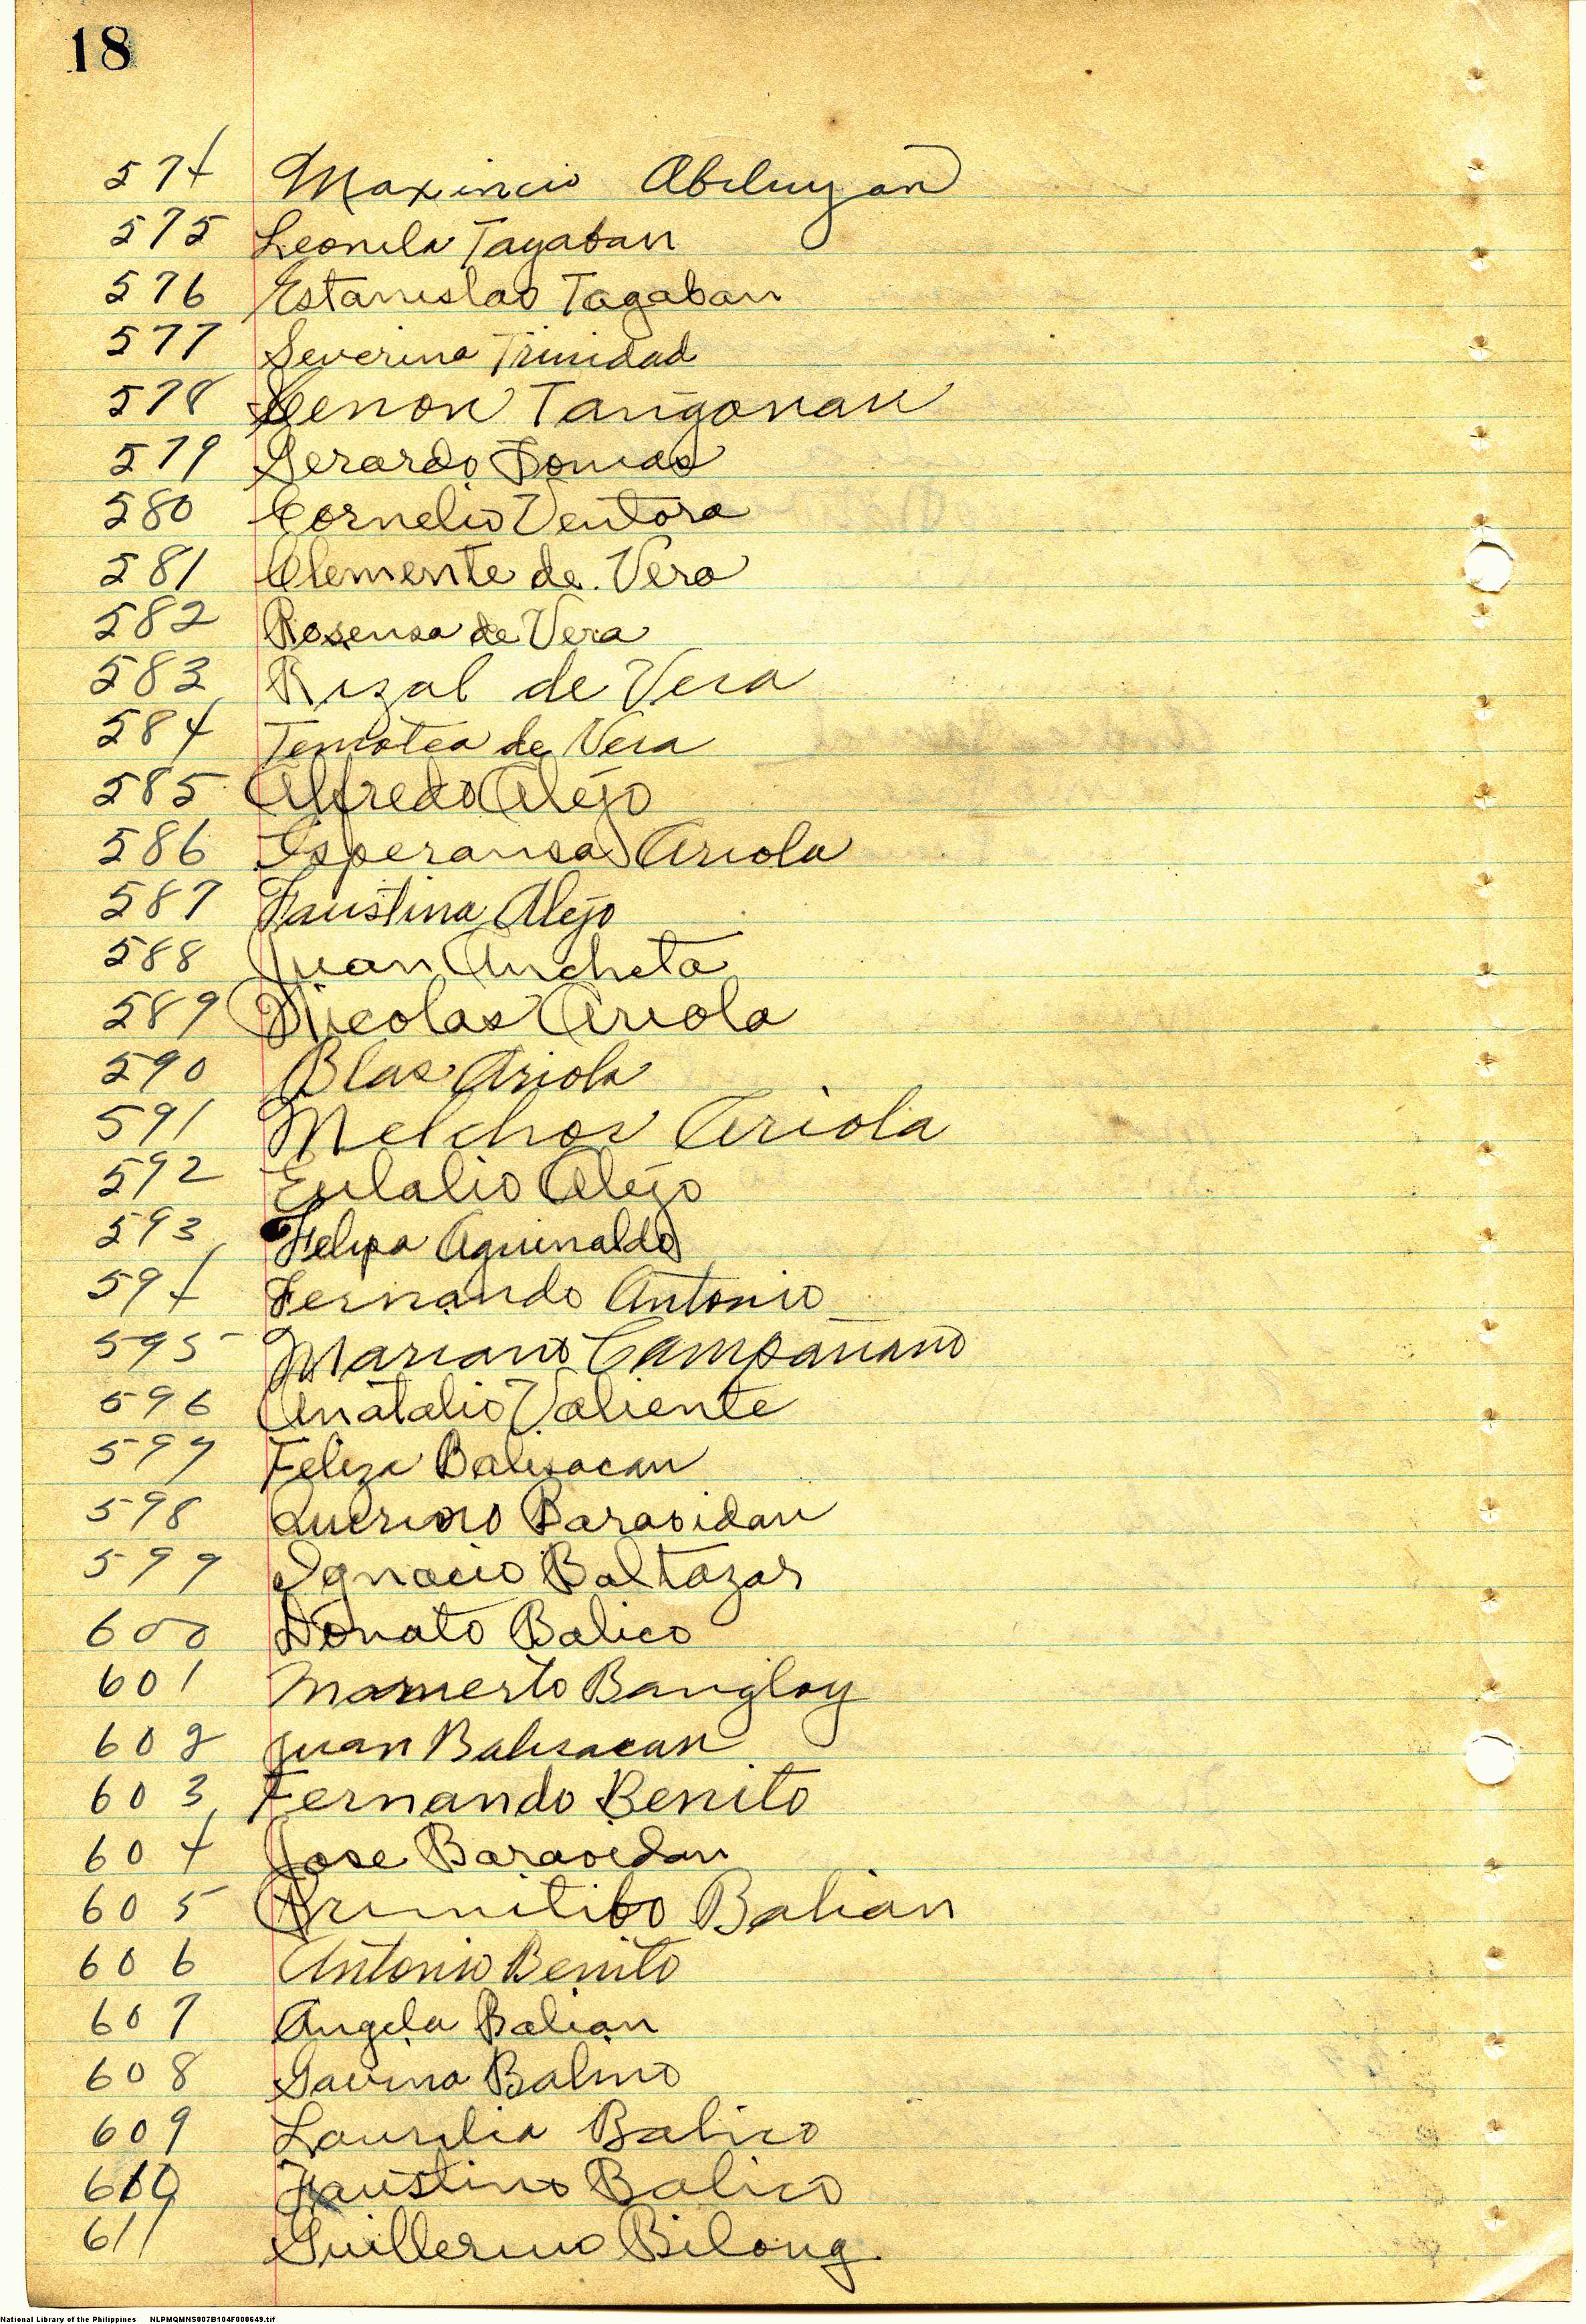 18
574 Maximcio Abiluyan
575 Leonila Tagaban
576 Estanislao Tagaban
577 Severina Trinidad
578 Zenon Tangonan
579 Gerardo Tomas
580 Cornelio Ventora
581 Clemente de Vera
582 Rosensa de Vera
583 Rizal de Vera
584 Temotea de Vera
585 Alfredo Alejo
586 Esperansa Ariola
587 Faustina Alejo
588 Juan Ancheta
589 Nicolas Ariola
590 Blas Ariola
591 Melchor Ariola
592 Eulalio Alejo
593 Felipa Aguinaldo
594 Fernando Antonio
595 Mariano Campañano
596 Anatalio Valiente
597 Feliza Balisacan
598 Querino Baraoidan
599 Ignacio Baltazar
600 Donato Balico
601 Mamerto Bangloy
602 Juan Balisacan
603 Fernando Benito
604 Jose Baraoidan
605 Primitibo Balian
606 Antonio Benito
607 Angela Balian
608 Gavina Balino
609 Laurelia Balico
610 Faustino Balico
611 Guillermo Bilong
National Library of the Philippines NLPMQMNS007B104F000649.tif